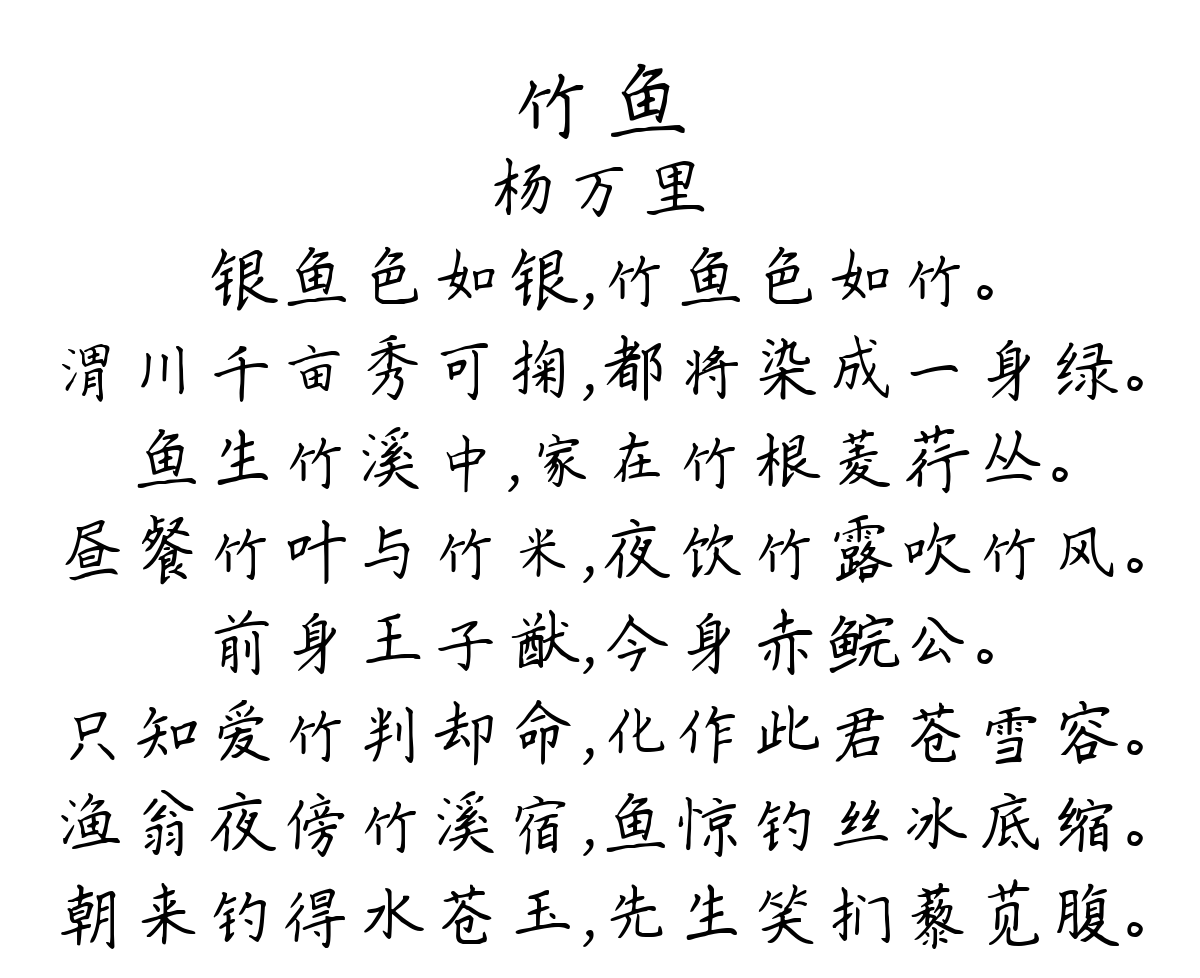 竹鱼
杨万里
银鱼色如银,竹鱼色如竹。
渭川千亩秀可掬,都将染成一身绿。
鱼生竹溪中,家在竹根菱荇丛。
昼餐竹叶与竹米,夜饮竹露吹竹风。
前身王子猷,今身赤鲩公。
只知爱竹判却命,化作此君苍雪容。
渔翁夜傍竹溪宿,鱼惊钓丝冰底缩。
朝来钓得水苍玉,先生笑扪藜苋腹。